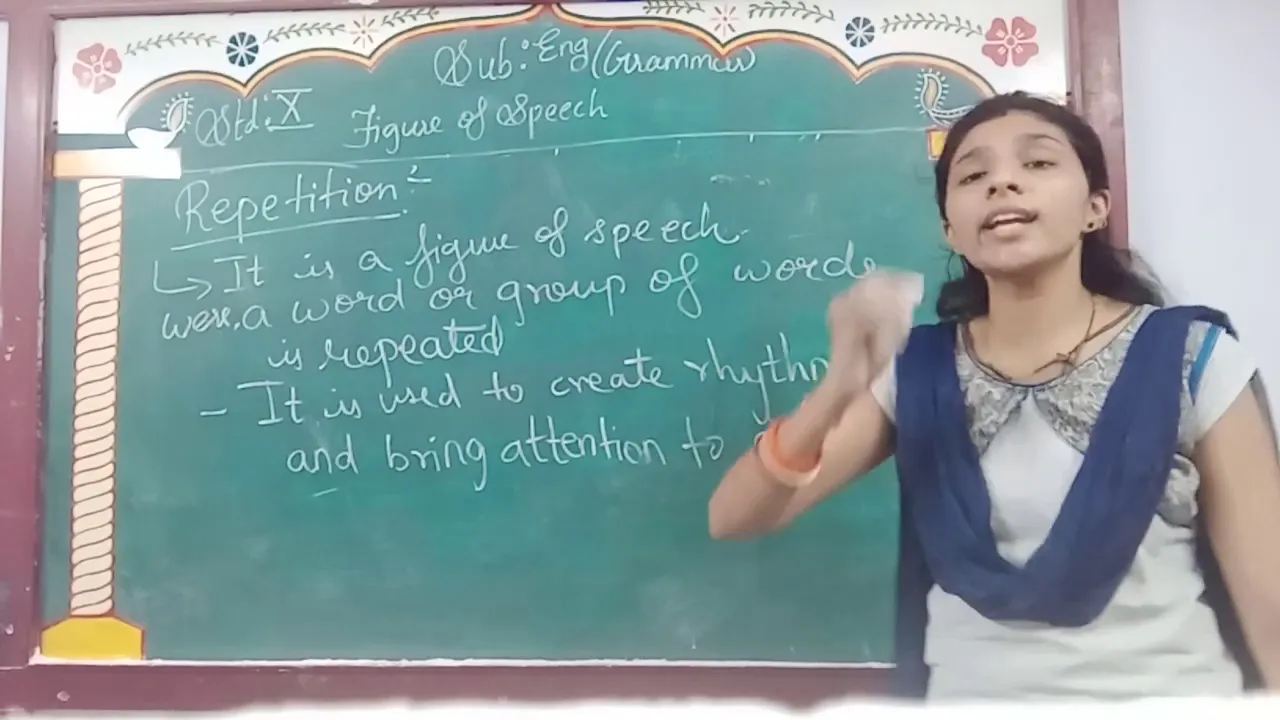 Sub: Eng (Grammar)
Std: X Figure of Speech
Repetition:
↳ It is a figure of speech.
were. a word or group of words
is repeated
- It is used to create rhythm
and bring attention to